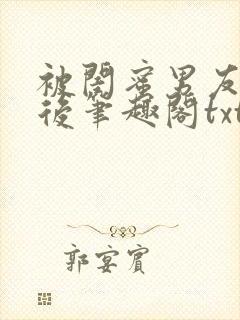 被閤蜜男友
後筆趣閣txt
郭宴賓